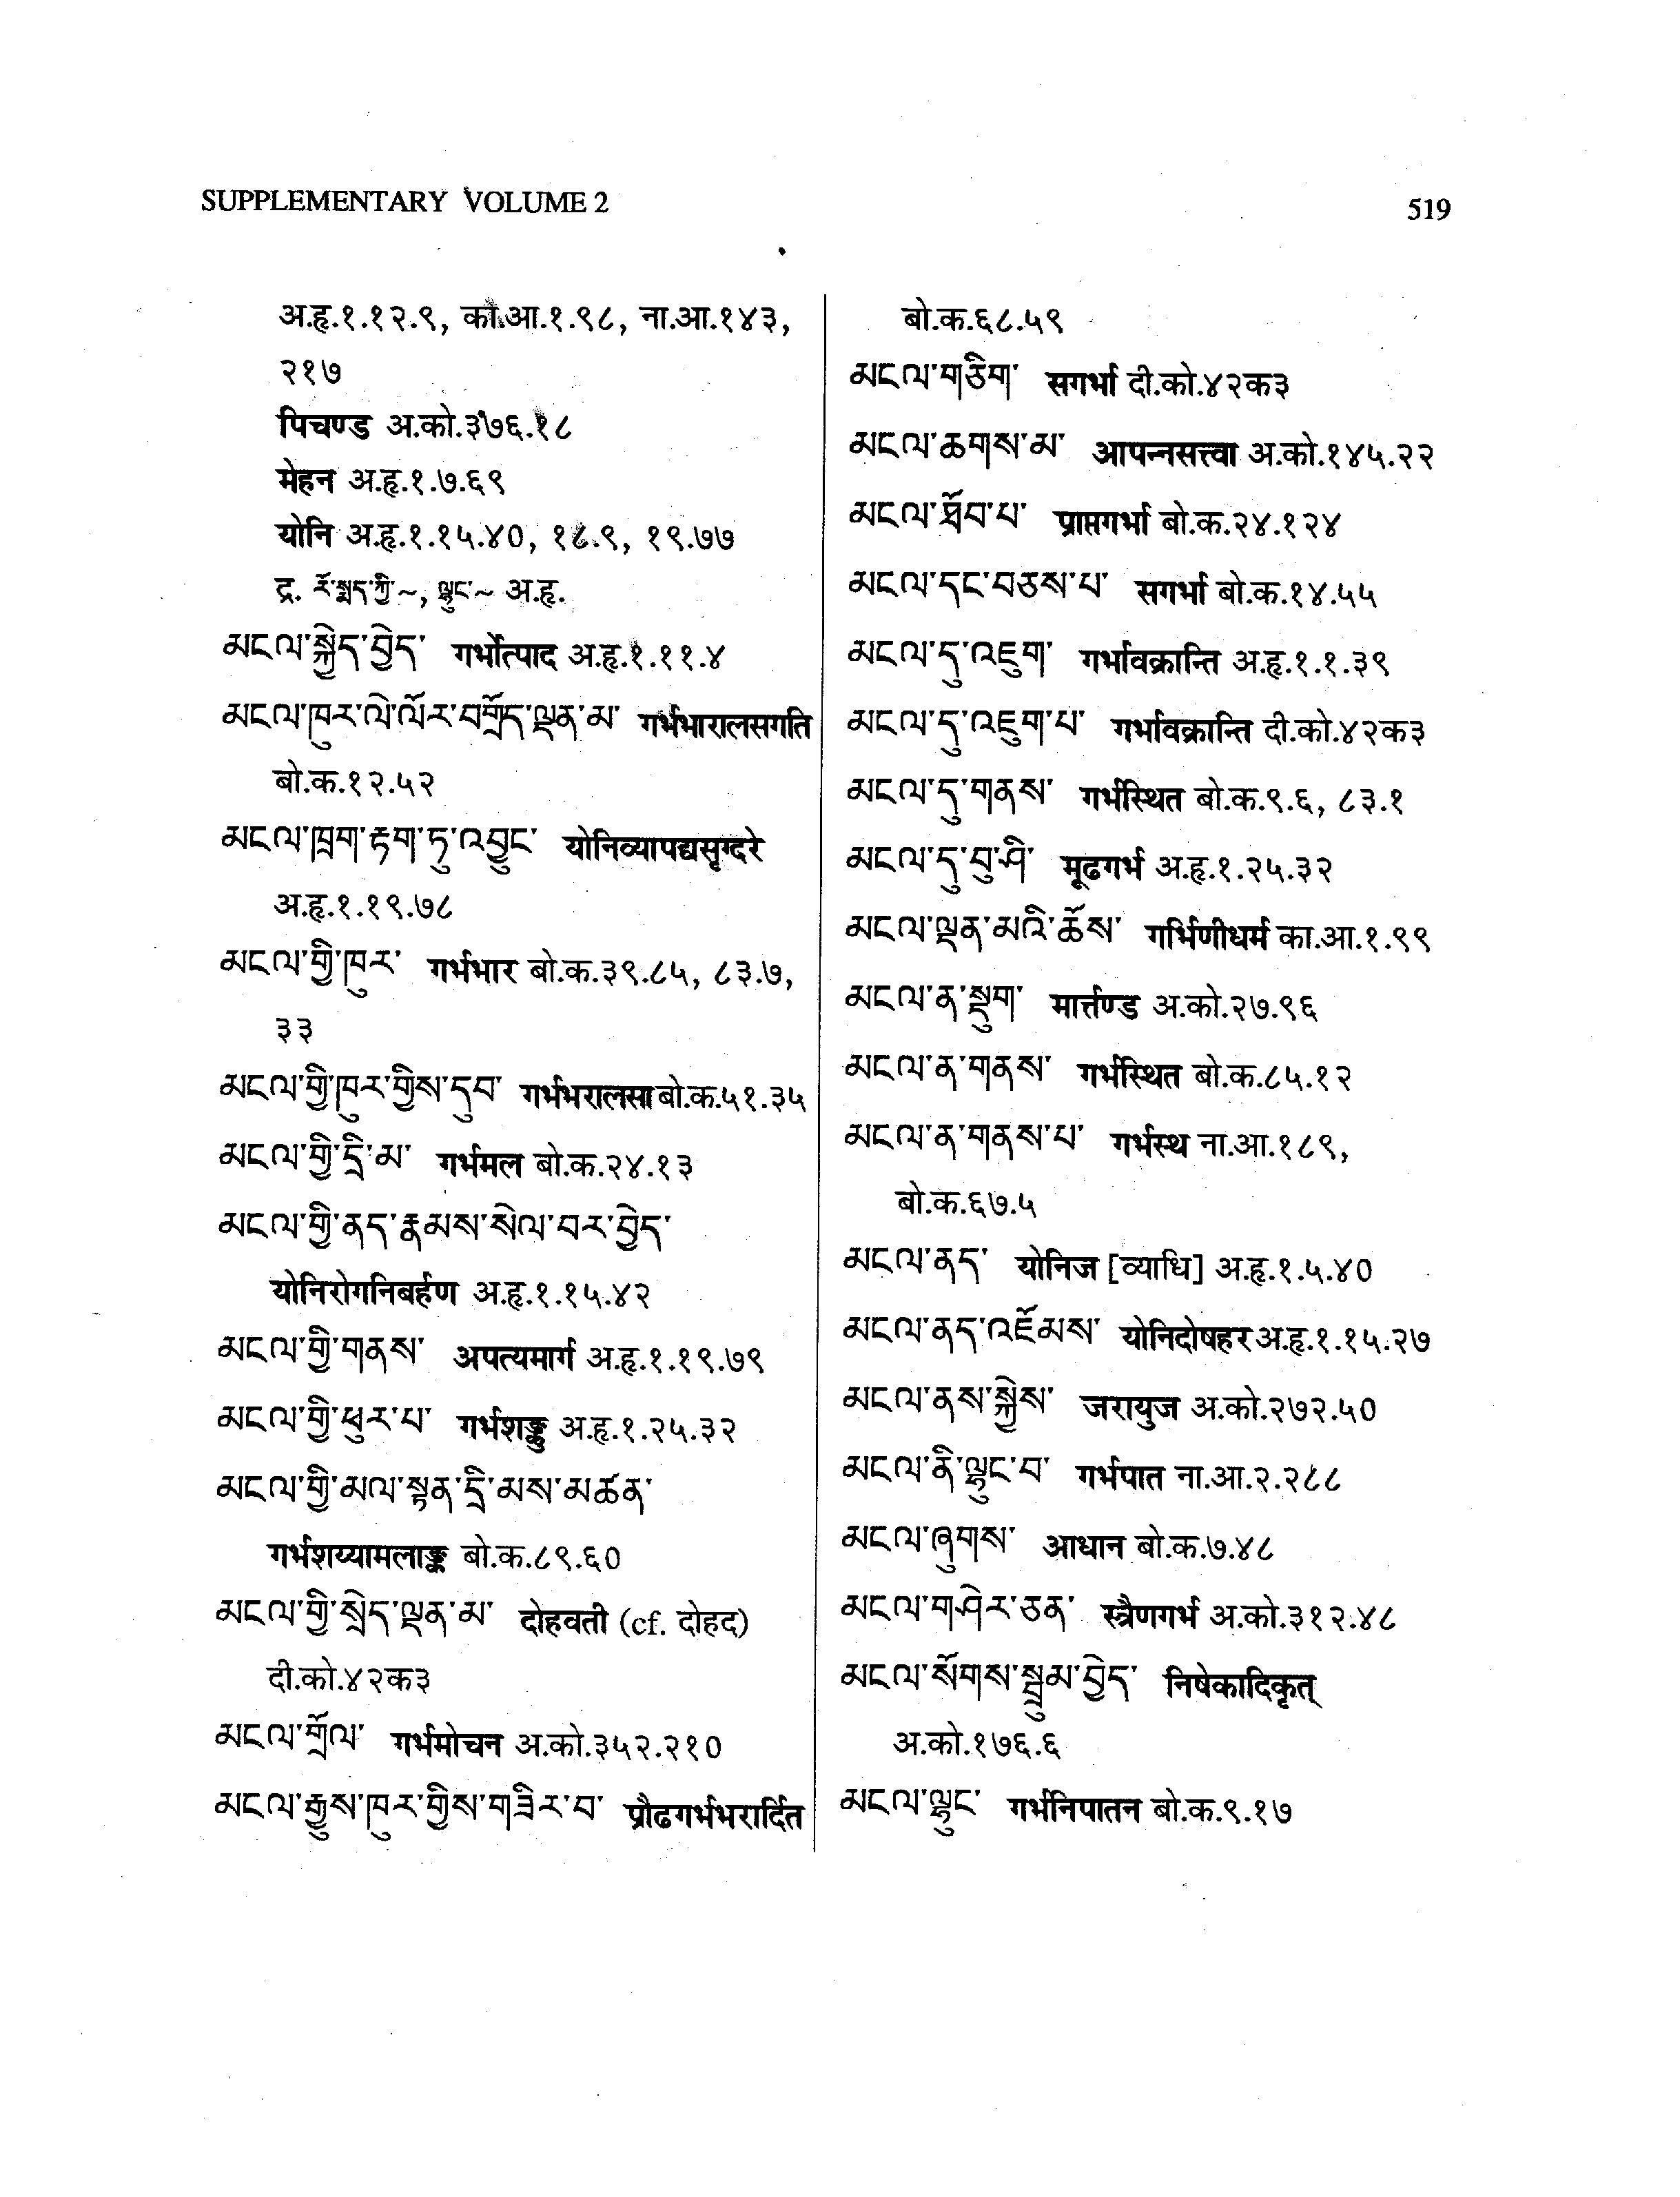 SUPPLEMENTARY VOLUME 2
519
अ.हृ.१.१२.९, का.आ.१.९८, ना.आ.१४३,
२१७
पिचण्ड अ.को.३७६.१८
मेहन अ.हृ.१.७.६९
योनि अ.हृ.१.१५.४०, १८.९, १९.७७
द्र. རོ་སྨད་ཀྱི་~, ལྷུང་~ अ.हृ.
མངལ་སྐྱེད་བྱེད་ गर्भोत्पाद अ.हृ.१.११.४
མངལ་ཁུར་ལེ་ལོར་བགྲོད་ལྡན་མ་ गर्भभारालसगति
बो.क.१२.५२
མངལ་ཁྲག་རྟག་ཏུ་འབྱུང་ योनिव्यापद्यसृग्दरे
अ.हृ.१.१९.७८
མངལ་གྱི་ཁུར་ गर्भभार बो.क.३९.८५, ८३.७,
३३
མངལ་གྱི་ཁུར་གྱིས་དུབ་ गर्भभरालसा बो.क.५१.३५
མངལ་གྱི་དྲི་མ་ गर्भमल बो.क.२४.१३
མངལ་གྱི་ནད་རྣམས་སེལ་བར་བྱེད་
योनिरोगनिबर्हण अ.हृ.१.१५.४२
མངལ་གྱི་གནས་ अपत्यमार्ग अ.हृ.१.१९.७९
མངལ་གྱི་ཕུར་པ་ गर्भशङ्कु अ.हृ.१.२५.३२
མངལ་གྱི་མལ་སྟན་དྲི་མས་མཚན་
गर्भशय्यामलाङ्क बो.क.८९.६०
མངལ་གྱི་སྲེད་ལྡན་མ་ दोहवती (cf. दोहद)
दी.को.४२क३
མངལ་གྲོལ་ गर्भमोचन अ.को.३५२.२१०
མངལ་རྒྱུས་ཁུར་གྱིས་གཟིར་བ་ प्रौढगर्भभरार्दित
बो.क.६८.५९
མངལ་གཅིག་ सगर्भा दी.को.४२क३
མངལ་ཆགས་མ་ आपन्नसत्त्वा अ.को.१४५.२२
མངལ་ཐོབ་པ་ प्राप्तगर्भा बो.क.२४.१२४
མངལ་དང་བཅས་པ་ सगर्भा बो.क.१४.५५
མངལ་དུ་འཇུག་ गर्भावक्रान्ति अ.हृ.१.१.३९
མངལ་དུ་འཇུག་པ་ गर्भावक्रान्ति दी.को.४२क३
མངལ་དུ་གནས་ गर्भस्थित बो.क.९.६, ८३.१
མངལ་དུ་བུ་ཤི་ मूढगर्भ अ.हृ.१.२५.३२
མངལ་ལྡན་མའི་ཆོས་ गर्भिणीधर्म का.आ.१.९९
མངལ་ན་སྡུག་ मार्त्तण्ड अ.को.२७.९६
མངལ་ན་གནས་ गर्भस्थित बो.क.८५.१२
མངལ་ན་གནས་པ་ गर्भस्थ ना.आ.१८९,
बो.क.६७.५
མངལ་ནད་ योनिज [व्याधि] अ.हृ.१.५.४०
མངལ་ནད་འཇོམས་ योनिदोषहर अ.हृ.१.१५.२७
མངལ་ནས་སྐྱེས་ जरायुज अ.को.२७२.५०
མངལ་ནི་ལྷུང་བ་ गर्भपात ना.आ.२.२८८
མངལ་ཞུགས་ आधान बो.क.७.४८
མངལ་གཤེར་ཅན་ स्त्रैणगर्भ अ.को.३१२.४८
མངལ་སོགས་སྦྲུམ་བྱེད་ निषेकादिकृत्
अ.को.१७६.६
མངལ་ལྷུང་ गर्भनिपातन बो.क.९.१७